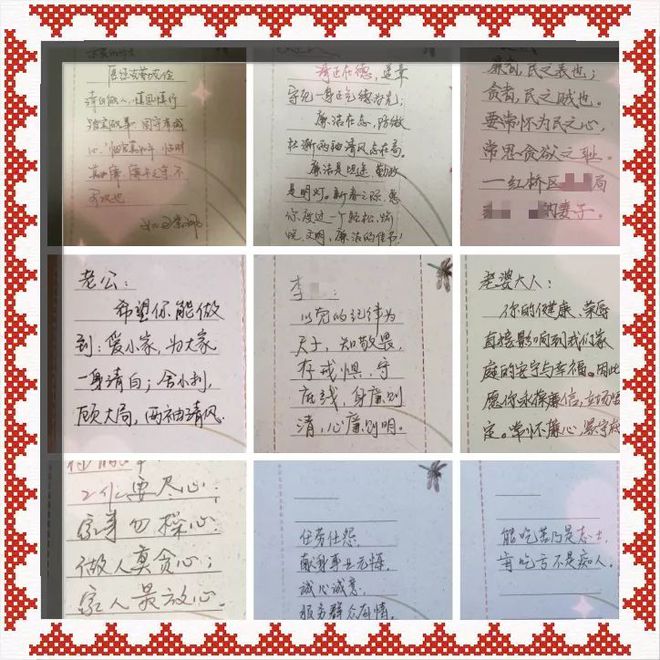 清白做人,谨慎行
身正在德,遵章
守纪一身正气德治先;
廉洁在志,防微
杜渐两袖清风志在高。
廉洁是坦途,勤政
是明灯。新春之际,愿
你度过一个轻松、愉
悦、文明、廉洁的佳节!
廉者,民之表也;
贪者,民之贼也。
要常怀为民之心,
常思贪欲之耻。
—红桥区 局
的妻子。
老公:
希望你能做
到:爱小家,为大家
一身清白;舍小利,
顾大局,两袖清风.
李
以党的纪律为
尺子,知敬畏、
存戒惧、守
底线,身廉则
清,心廉则明。
老婆大人:
你的健康、荣辱
直接影响到我们家
庭的安宁与幸福。因此
愿你永葆廉信,立场坚
定。常怀廉心,严守底
工作要尽心;
家事勿操心;
做人莫贪心;
家人最放心.
任劳任怨,
献身事业无悔,
诚心诚意,
服务群众有情.
能吃苦乃是志士,
肯吃亏不是痴人.